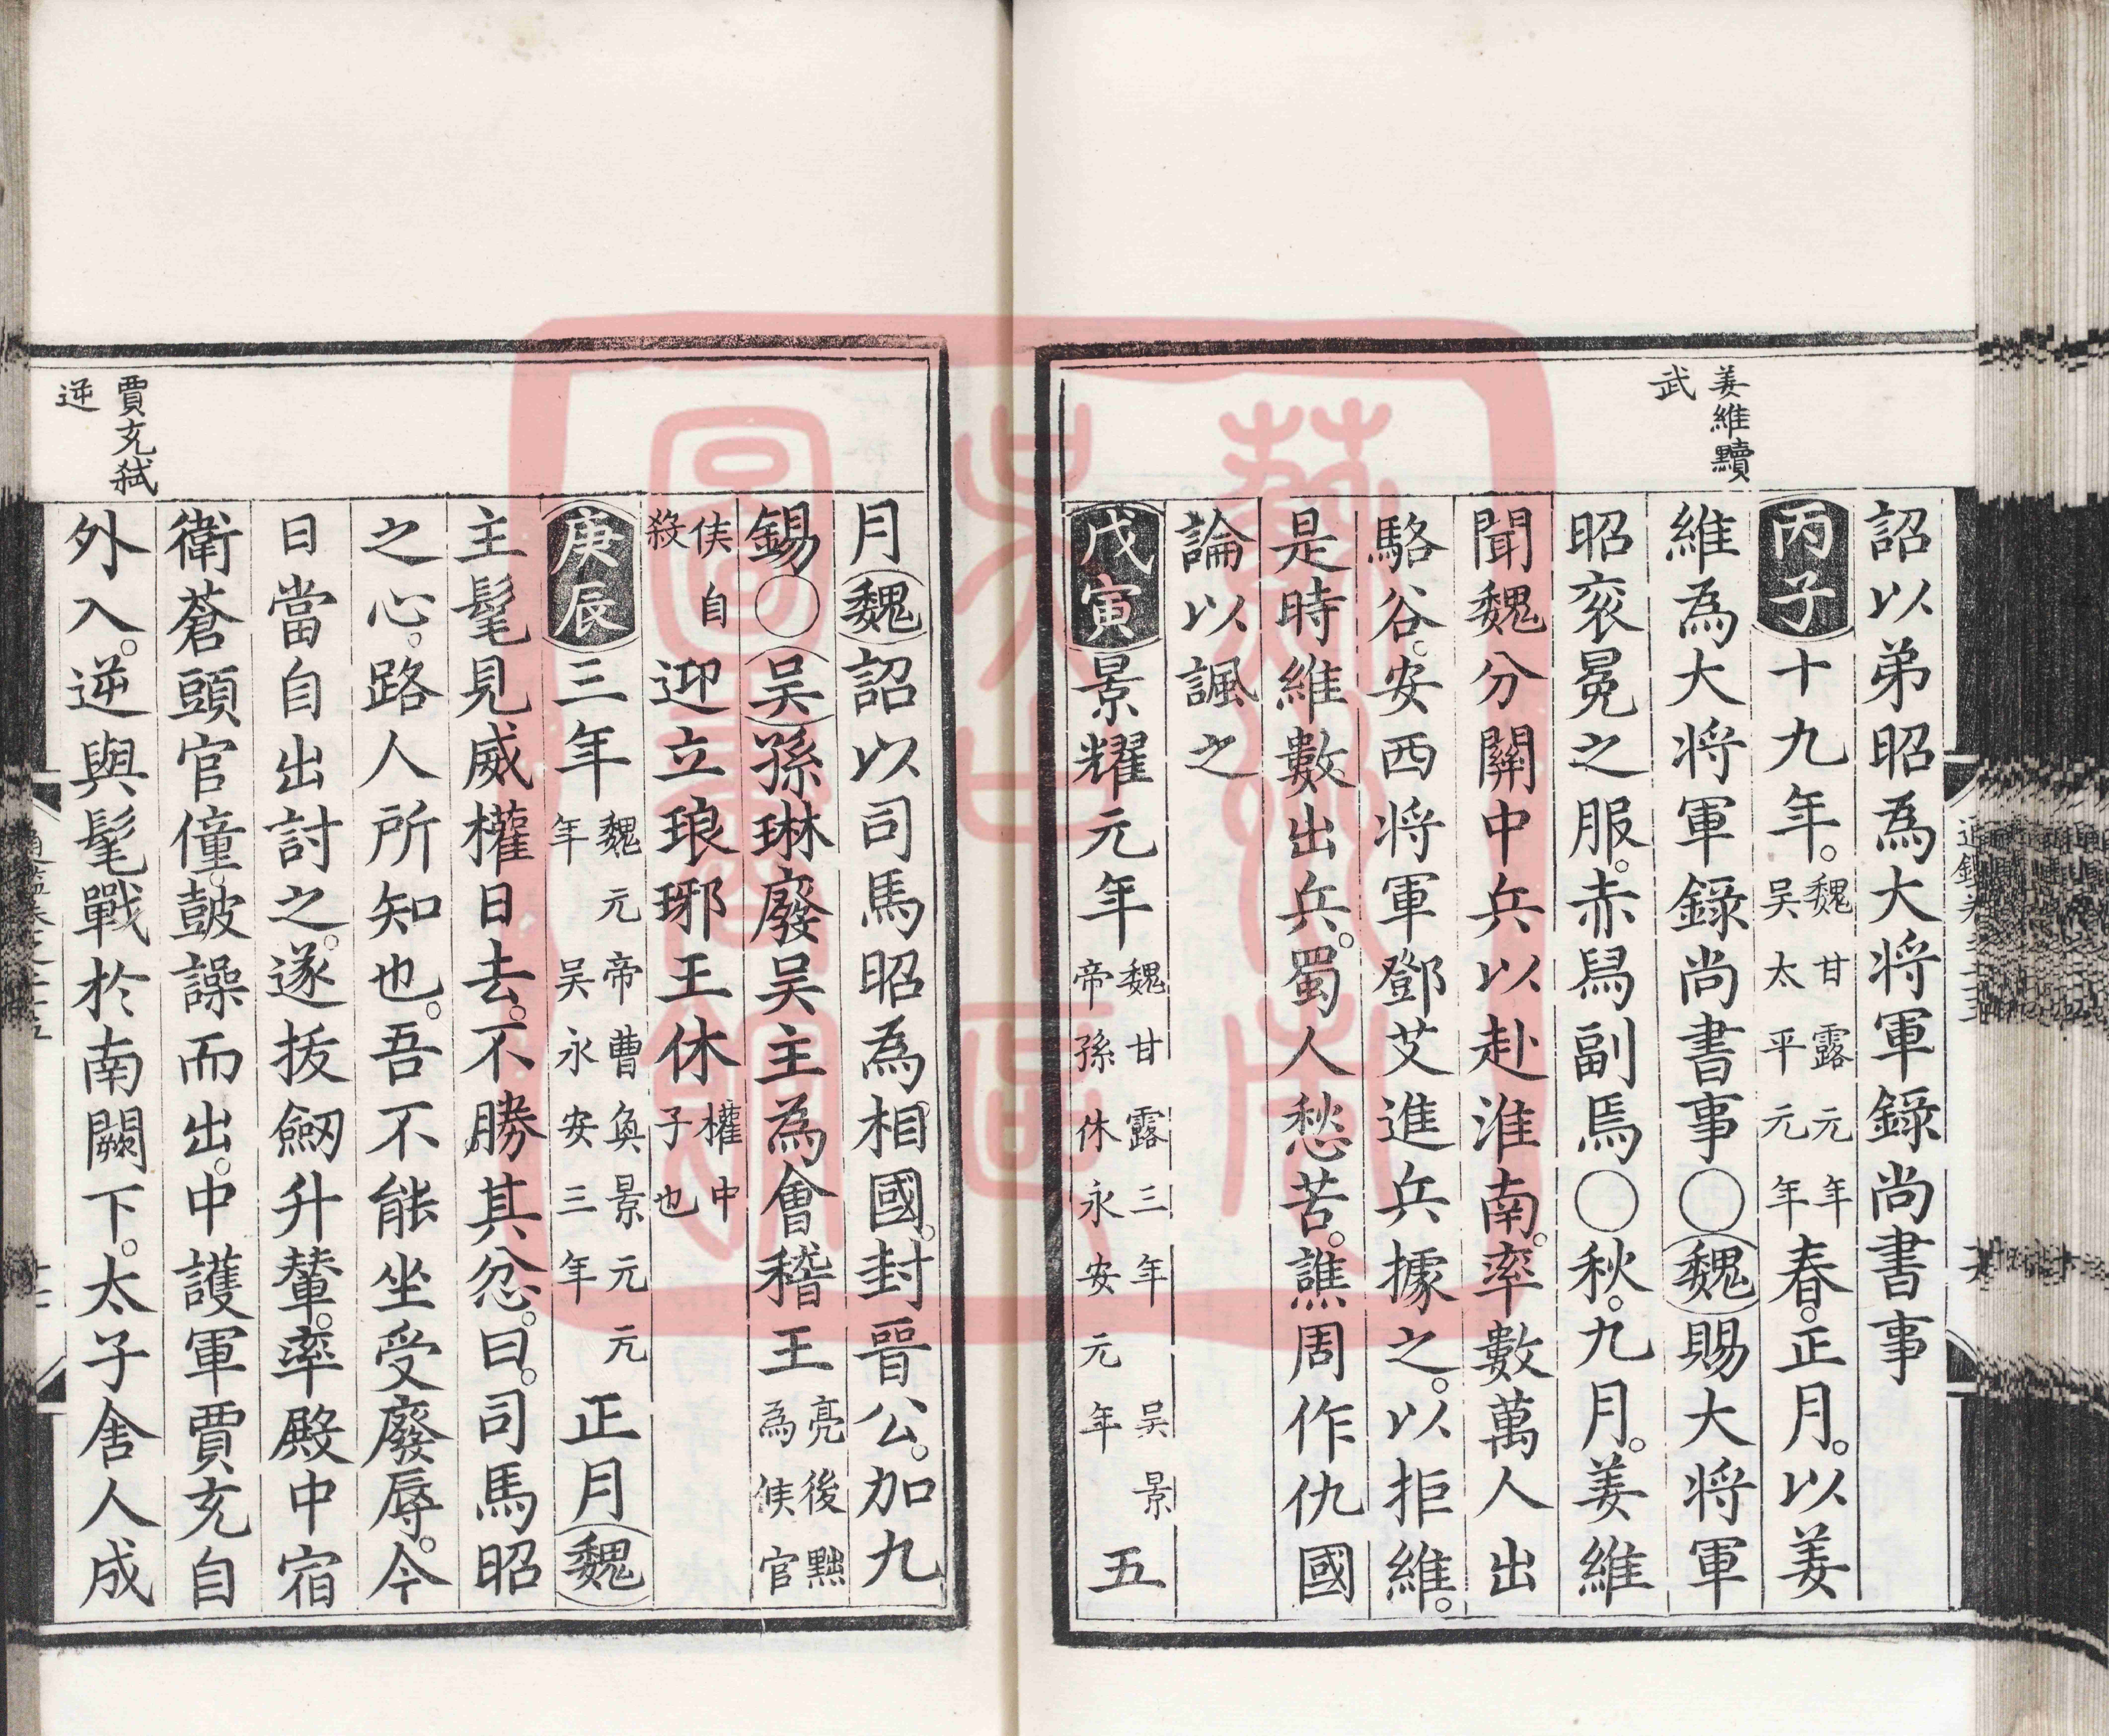 姜維黷
武
詔以弟昭為大将軍錄尚書事
丙子十九年。魏甘露元年吴太平元年春。正月。以姜
維為大将軍錄尚書事○魏賜大将軍
昭衮冕之服。赤舄副焉○秋。九月。姜維
聞魏分關中兵以赴淮南。率數萬人出
駱谷。安西将軍鄧艾進兵據之。以拒維。
是時維數出兵。蜀人愁苦。譙周作仇國
論以諷之
戊寅景耀元年魏甘露三年吴景帝孫休永安元年五
月魏詔以司馬昭為相國。封晉公。加九
錫○吴孫琳廢吴主為會稽王亮後黜為矦官
矦自殺迎立琅琊王休權中子也
庚辰三年魏元帝曹奐景元元年吴永安三年正月魏
主髦見威權日去。不勝其忿。曰。司馬昭
之心。路人所知也。吾不能坐受廢辱。今
日當自出討之。遂拔劒升輦。率殿中宿
衛蒼頭官僮。鼓譟而出。中護軍賈充自
外入。逆與髦戰於南闕下。太子舍人成
賈充弑
逆